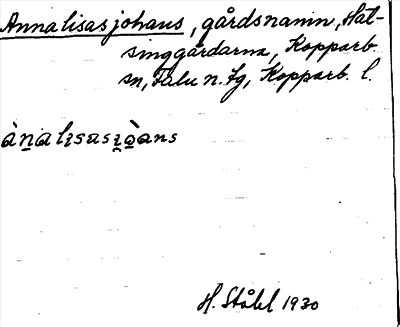 Annalisasjohans, gårdsnamn, Häl-
singgårdarna, Kopparb.
sn, Falu n. tg, Kopparb. l.
H. Ståhl 1930